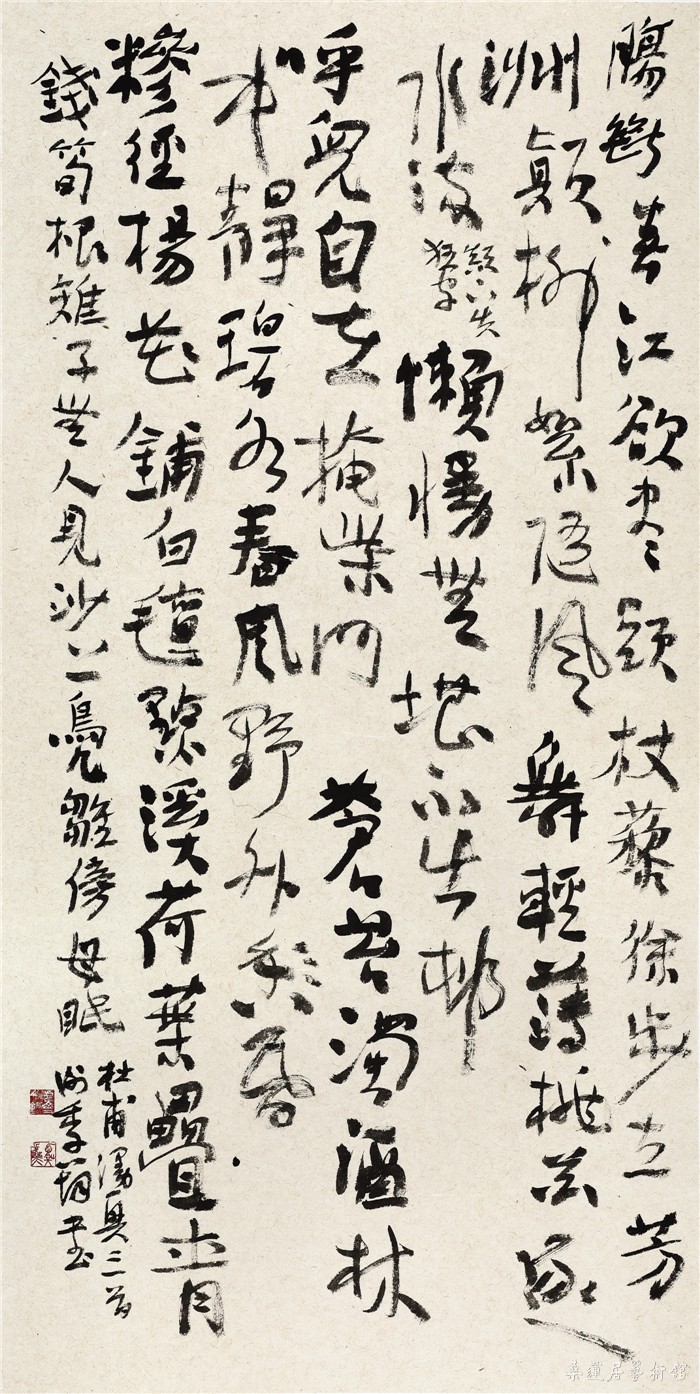 腸斷春江欲尽頭杖藜徐步立芳
洲顛柳絮隨風舞輕薄桃花逐
水流
顛下失
狂字
懶慢無堪不出邨
呼兒自在掩柴門蒼苔濁酒林
中靜碧水春風野外昏
糝徑楊花鋪白氈點溪荷葉疊青
錢筍根雉子無人見沙上鳧雛傍母眠
杜甫漫興三首
季書
蓮居藝術館